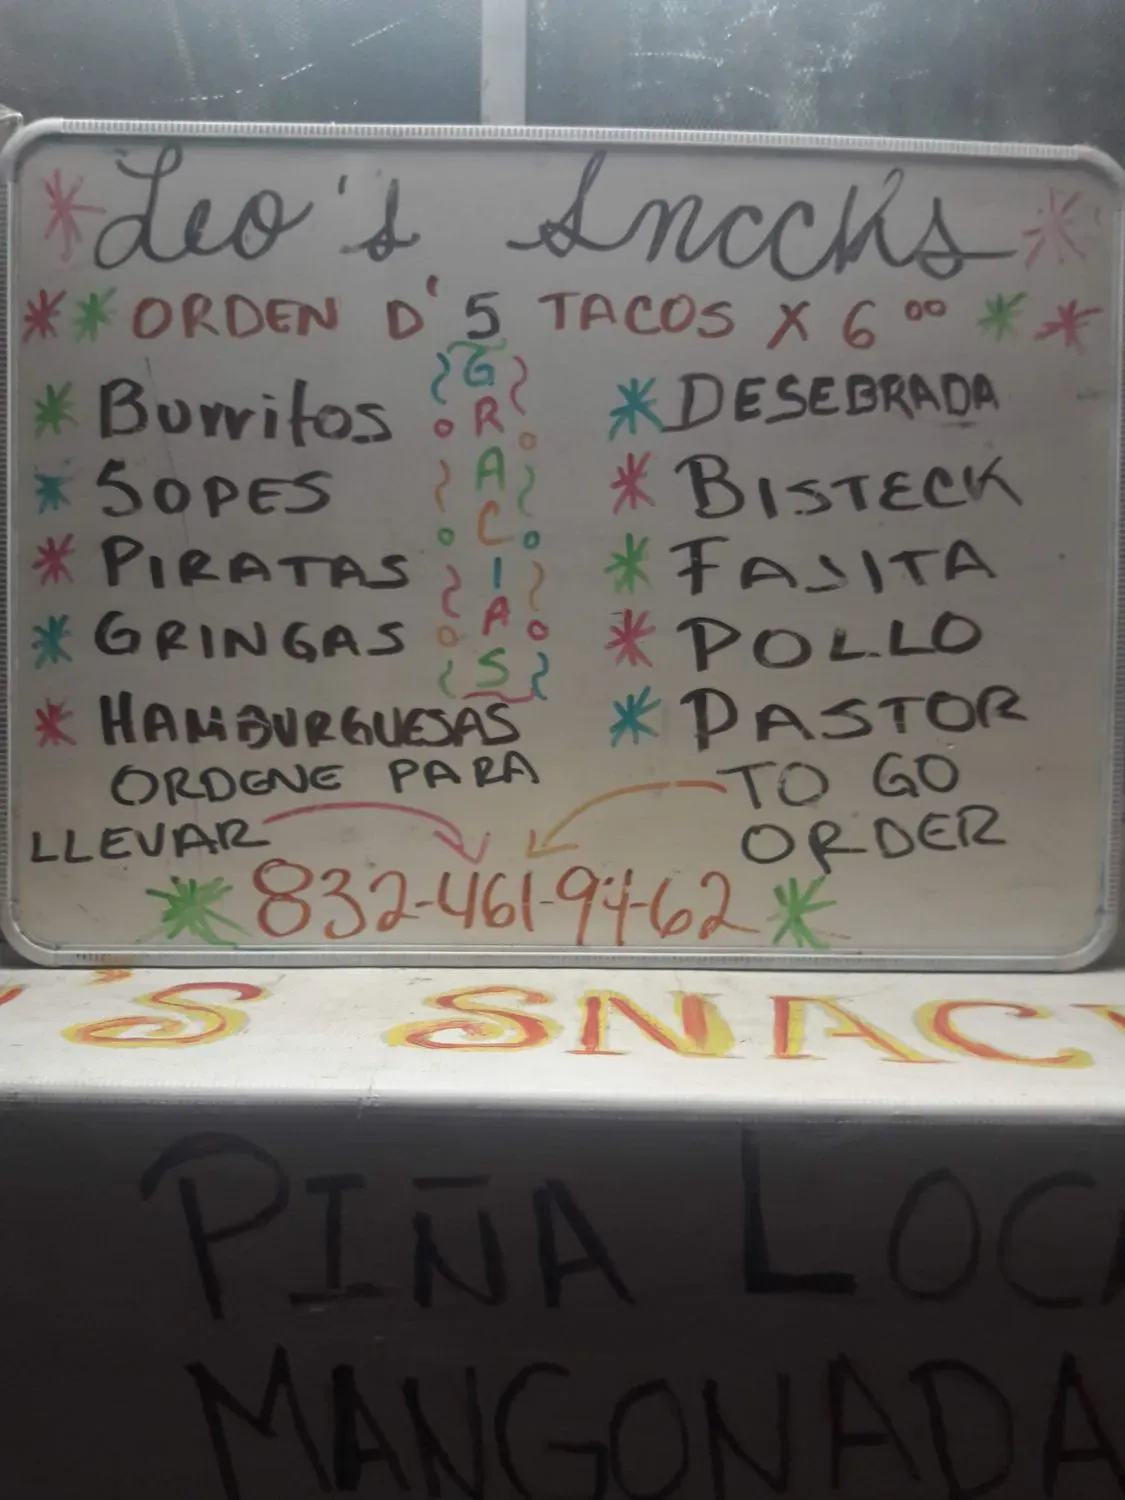 Leo's Snccks
ORDEN D' 5 TACOS X 6 00
GRACIAS
Burritos
SOPES
PIRATAS
GRINGAS
HAMBURGUESAS
DESEBRADA
BISTECK
FAJITA
POLLO
PASTOR
ORDENE PARA
LLEVAR
TO GO
ORDER
832-461-94-62
'S SNAC
PIÑA LOCA
MANGONADA